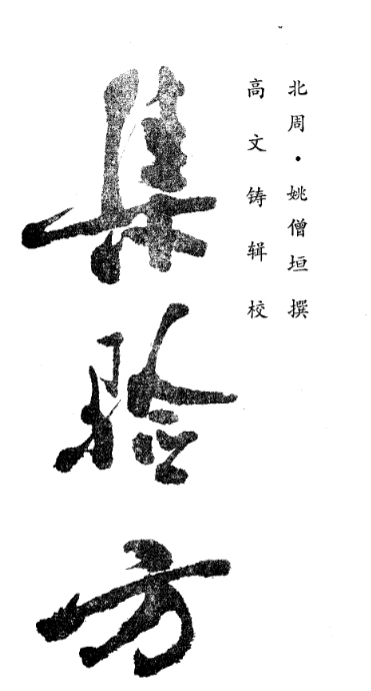 北周·姚僧垣撰
高文铸辑校
集验方